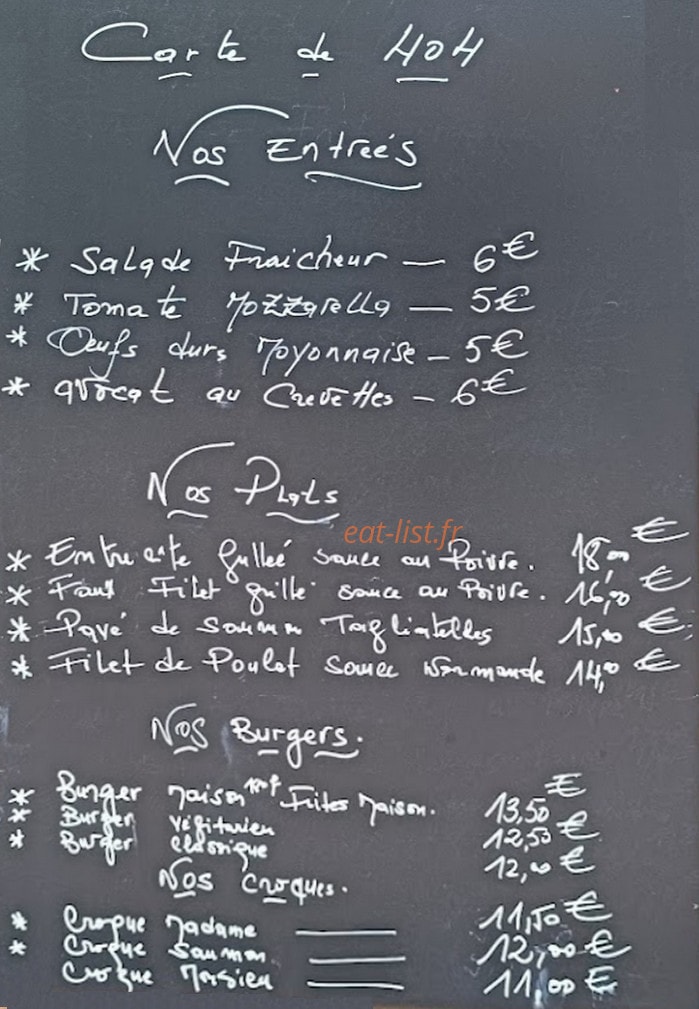 Carte de 404
Nos Entreés
* Salade Fraicheur — 6€
* Tomate Mozzarella — 5€
* Oeufs durs Mayonnaise — 5€
* avocat au Crevettes — 6€
Nos Plats
eat-list.fr
* Entrecote grilleé sauce au Poivre. 18,00 €
* Faux Filet grille sauce au Poivre. 16,00 €
* Pavé de Saumon Tagliatelles 15,00 €
* Filet de Poulet sauce Normande 14,0 €
Nos Burgers.
* Burger Maison Frites Maison. 13,50 €
* Burger végitarien 12,50 €
* Burger classique 12,00 €
Nos Croques.
* Croque Madame — 11,50 €
* Croque Saumon — 12,00 €
Croque Monsieu — 11,00 €